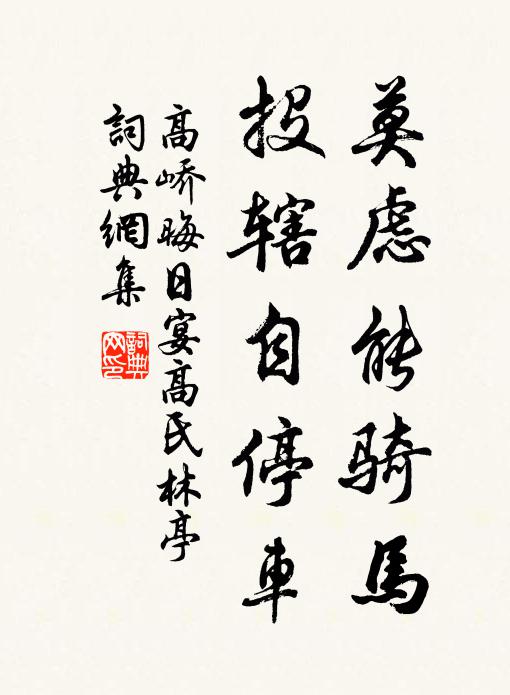 莫慮能騎馬
投辖自停車
高嶠晦日宴高氏林亭
詞典網集
詞典网印